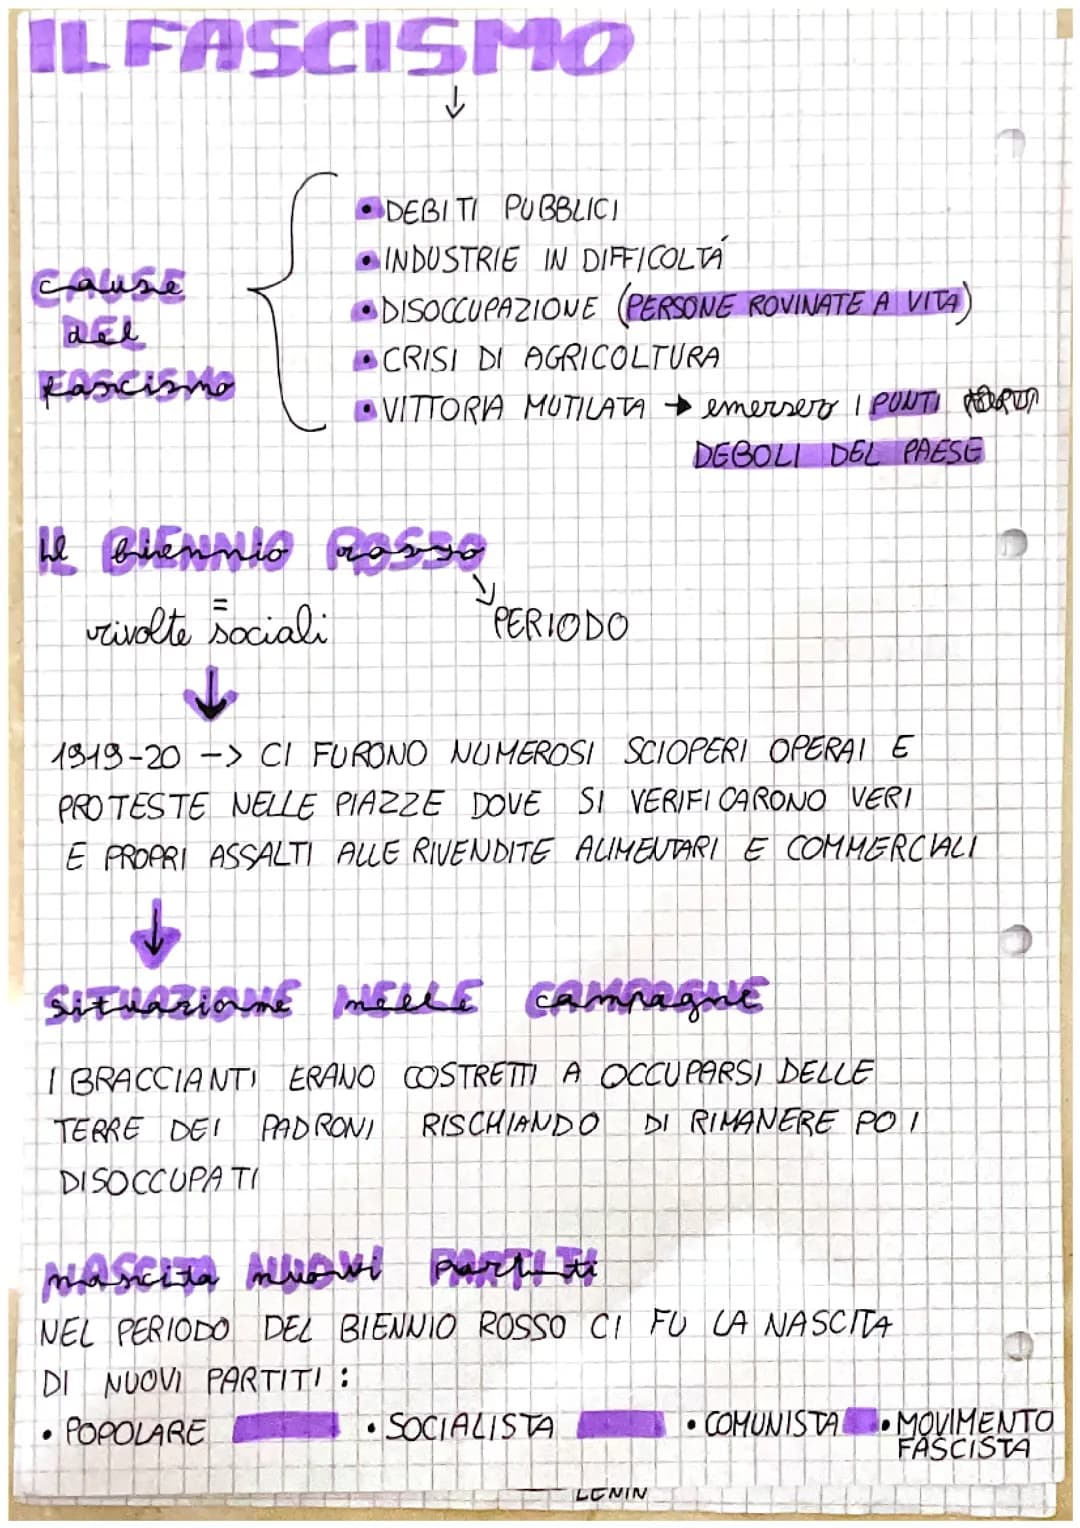 IL FASCISMO
↓
CAUSE
DEL
FASCISMO
• DEBITI PUBBLICI
• INDUSTRIE IN DIFFICOLTÁ
• DISOCCUPAZIONE (PERSONE ROVINATE A VITA)
• CRISI DI AGRICOLTURA
• VITTORIA MUTILATA → emersero I PUNTI
DEBOLI DEL PAESE
Il BIENNIO ROSSO
=
rivolte sociali
PERIODO
1919-20 -> CI FURONO NUMEROSI SCIOPERI OPERAI E
PROTESTE NELLE PIAZZE DOVE SI VERIFICARONO VERI
E PROPRI ASSALTI ALLE RIVENDITE ALIMENTARI E COMMERCIALI
SITUAZIONE NELLE CAMPAGNE
I BRACCIANTI ERANO COSTRETTI A OCCUPARSI DELLE
TERRE DEI PADRONI RISCHIANDO DI RIMANERE POI
DISOCCUPATI
NASCITA NUOVI PARTITI
NEL PERIODO DEL BIENNIO ROSSO CI FU LA NASCITA
DI NUOVI PARTITI :
• POPOLARE • SOCIALISTA • COMUNISTA • MOVIMENTO
FASCISTA
LENIN